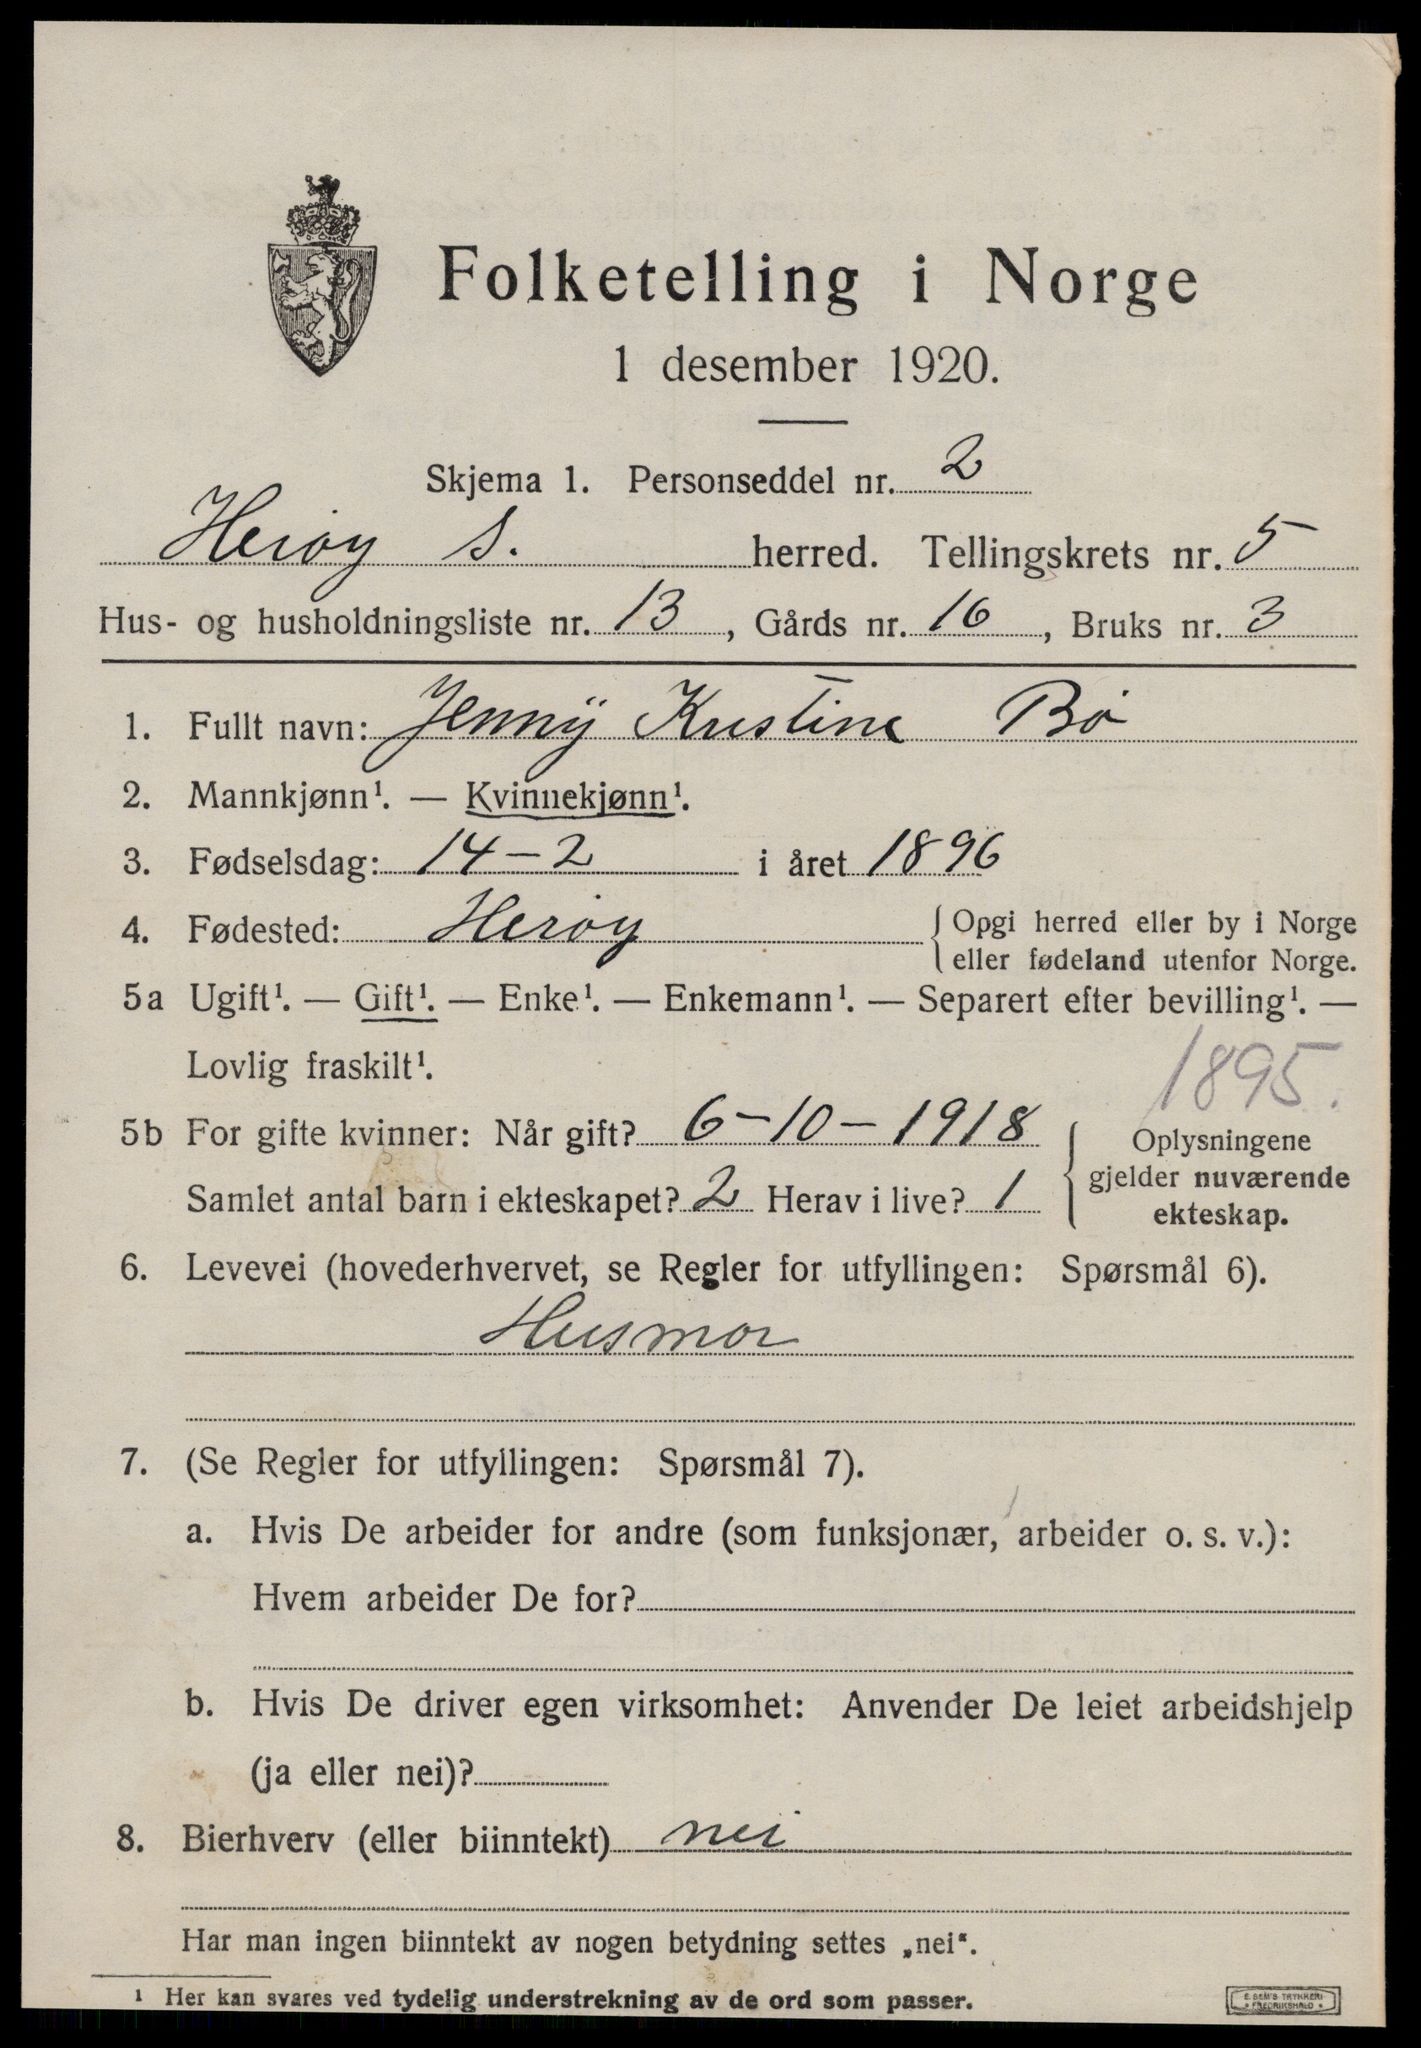 Folketelling i Norge
1 desember 1920.
Skjema 1. Personseddel nr. 2
Herøy S. herred. Tellingskrets nr. 5
Hus- og husholdningsliste nr. 13, Gårds nr. 16, Bruks nr. 3
1. Fullt navn: Jenny Kristine Bø
2. Mannkjønn¹. — Kvinnekjønn¹.
3. Fødselsdag: 14-2 i året 1896
4. Fødested: Herøy { Opgi herred eller by i Norge
eller fødeland utenfor Norge.
5a Ugift¹. — Gift¹. — Enke¹. — Enkemann¹. — Separert efter bevilling¹. —
Lovlig fraskilt¹.
1895.
5b For gifte kvinner: Når gift? 6-10-1918
Samlet antal barn i ekteskapet? 2 Herav i live? 1
{ Oplysningene
gjelder nuværende
ekteskap.
6. Levevei (hovederhvervet, se Regler for utfyllingen: Spørsmål 6).
Husmor
7. (Se Regler for utfyllingen: Spørsmål 7).
a. Hvis De arbeider for andre (som funksjonær, arbeider o. s. v.):
Hvem arbeider De for?
b. Hvis De driver egen virksomhet: Anvender De leiet arbeidshjelp
(ja eller nei)?
8. Bierhverv (eller biinntekt) nei
Har man ingen biinntekt av nogen betydning settes „nei“.
1 Her kan svares ved tydelig understrekning av de ord som passer.
E. SEM'S TRYKKERI
• FREDRIKSHALD •